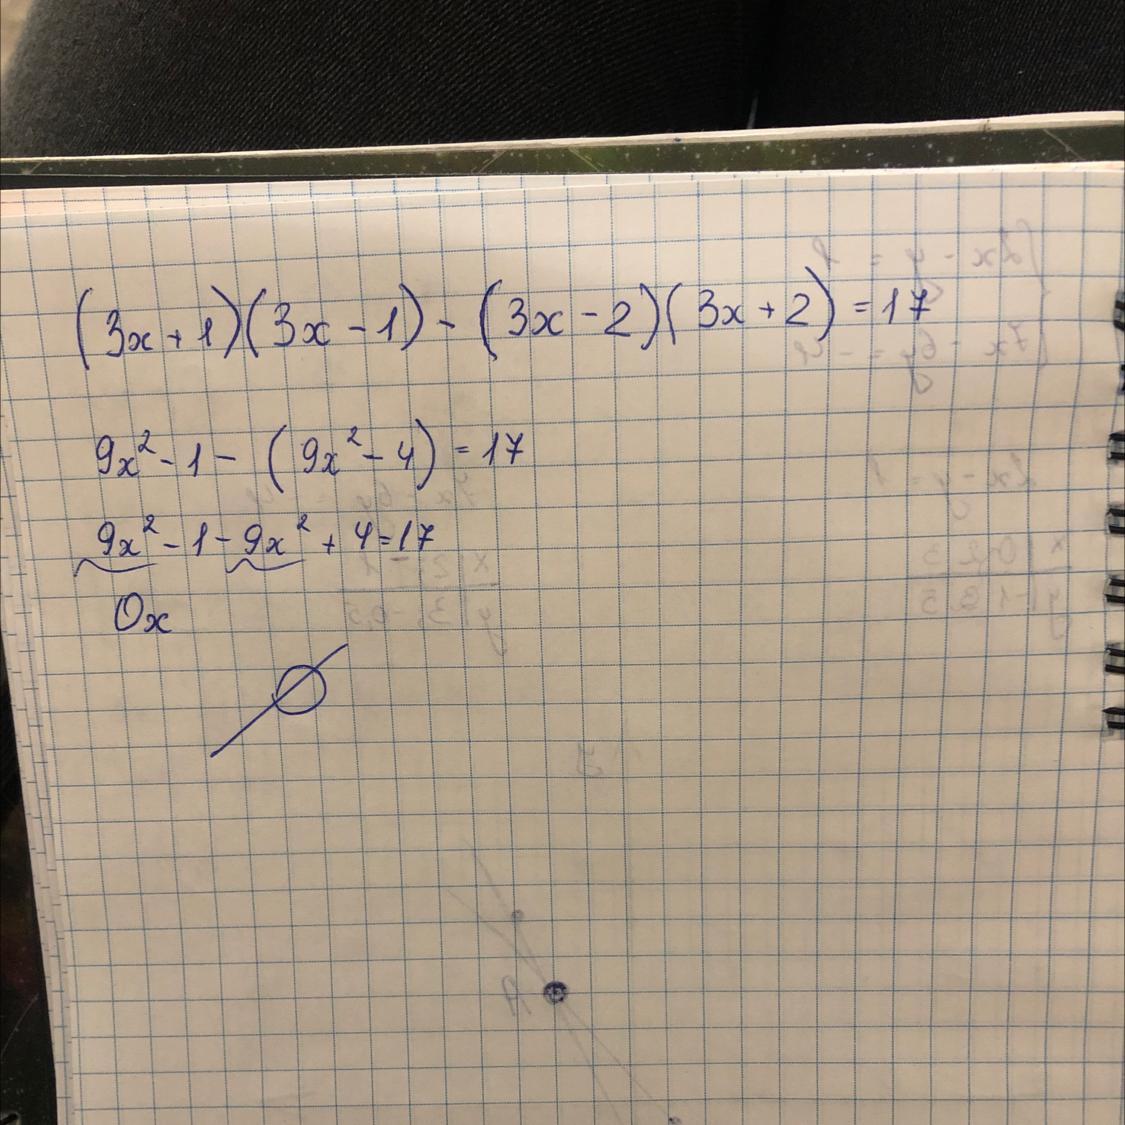 (3x + 1)(3x - 1) - (3x - 2)(3x + 2) = 17
9x² - 1 - (9x² - 4) = 17
9x² - 1 - 9x² + 4 = 17
0x
∅